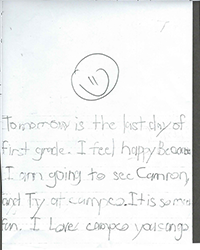 Tomorrow is the last day of
first grade. I feel happy Because
I am going to see Camron,
and Ty at campco. It is so much
fun. I Love campco